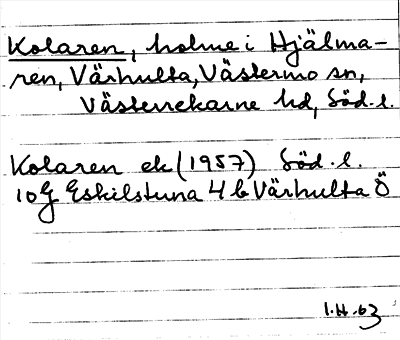 Kolaren, holme i Hjälma-
ren, Värhulta, Västermo sn,
Västerrekarne hd, Söd.l.
Kolaren ek (1957) Söd.l.
10g Eskilstuna 4b Värhulta Ö
1.H.63